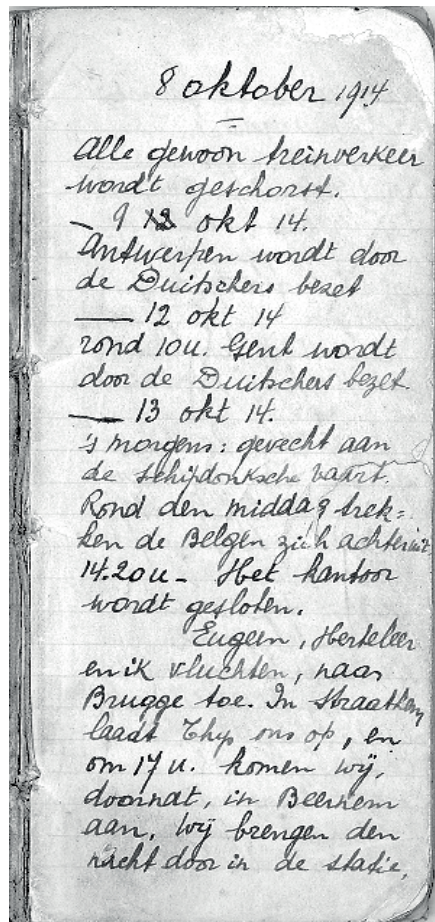 8 oktober 1914
Alle gewoon treinverkeer
wordt geschorst.
– 9 okt 14.
Antwerpen wordt door
de Duitschers bezet
— 12 okt 14
rond 10u. Gent wordt
door de Duitschers bezet.
— 13 okt 14.
's morgens: gevecht aan
de Schipdonksche vaart.
Rond den middag trek=
ken de Belgen zich achteruit
14.20u – Het kantoor
wordt gesloten.
Eugeen, Herteleer
en ik vluchten, naar
Brugge toe. In
laadt Thijs ons op, en
om 17u. komen wij,
doornat, in Beernem
aan. Wij brengen den
nacht door in de statie,